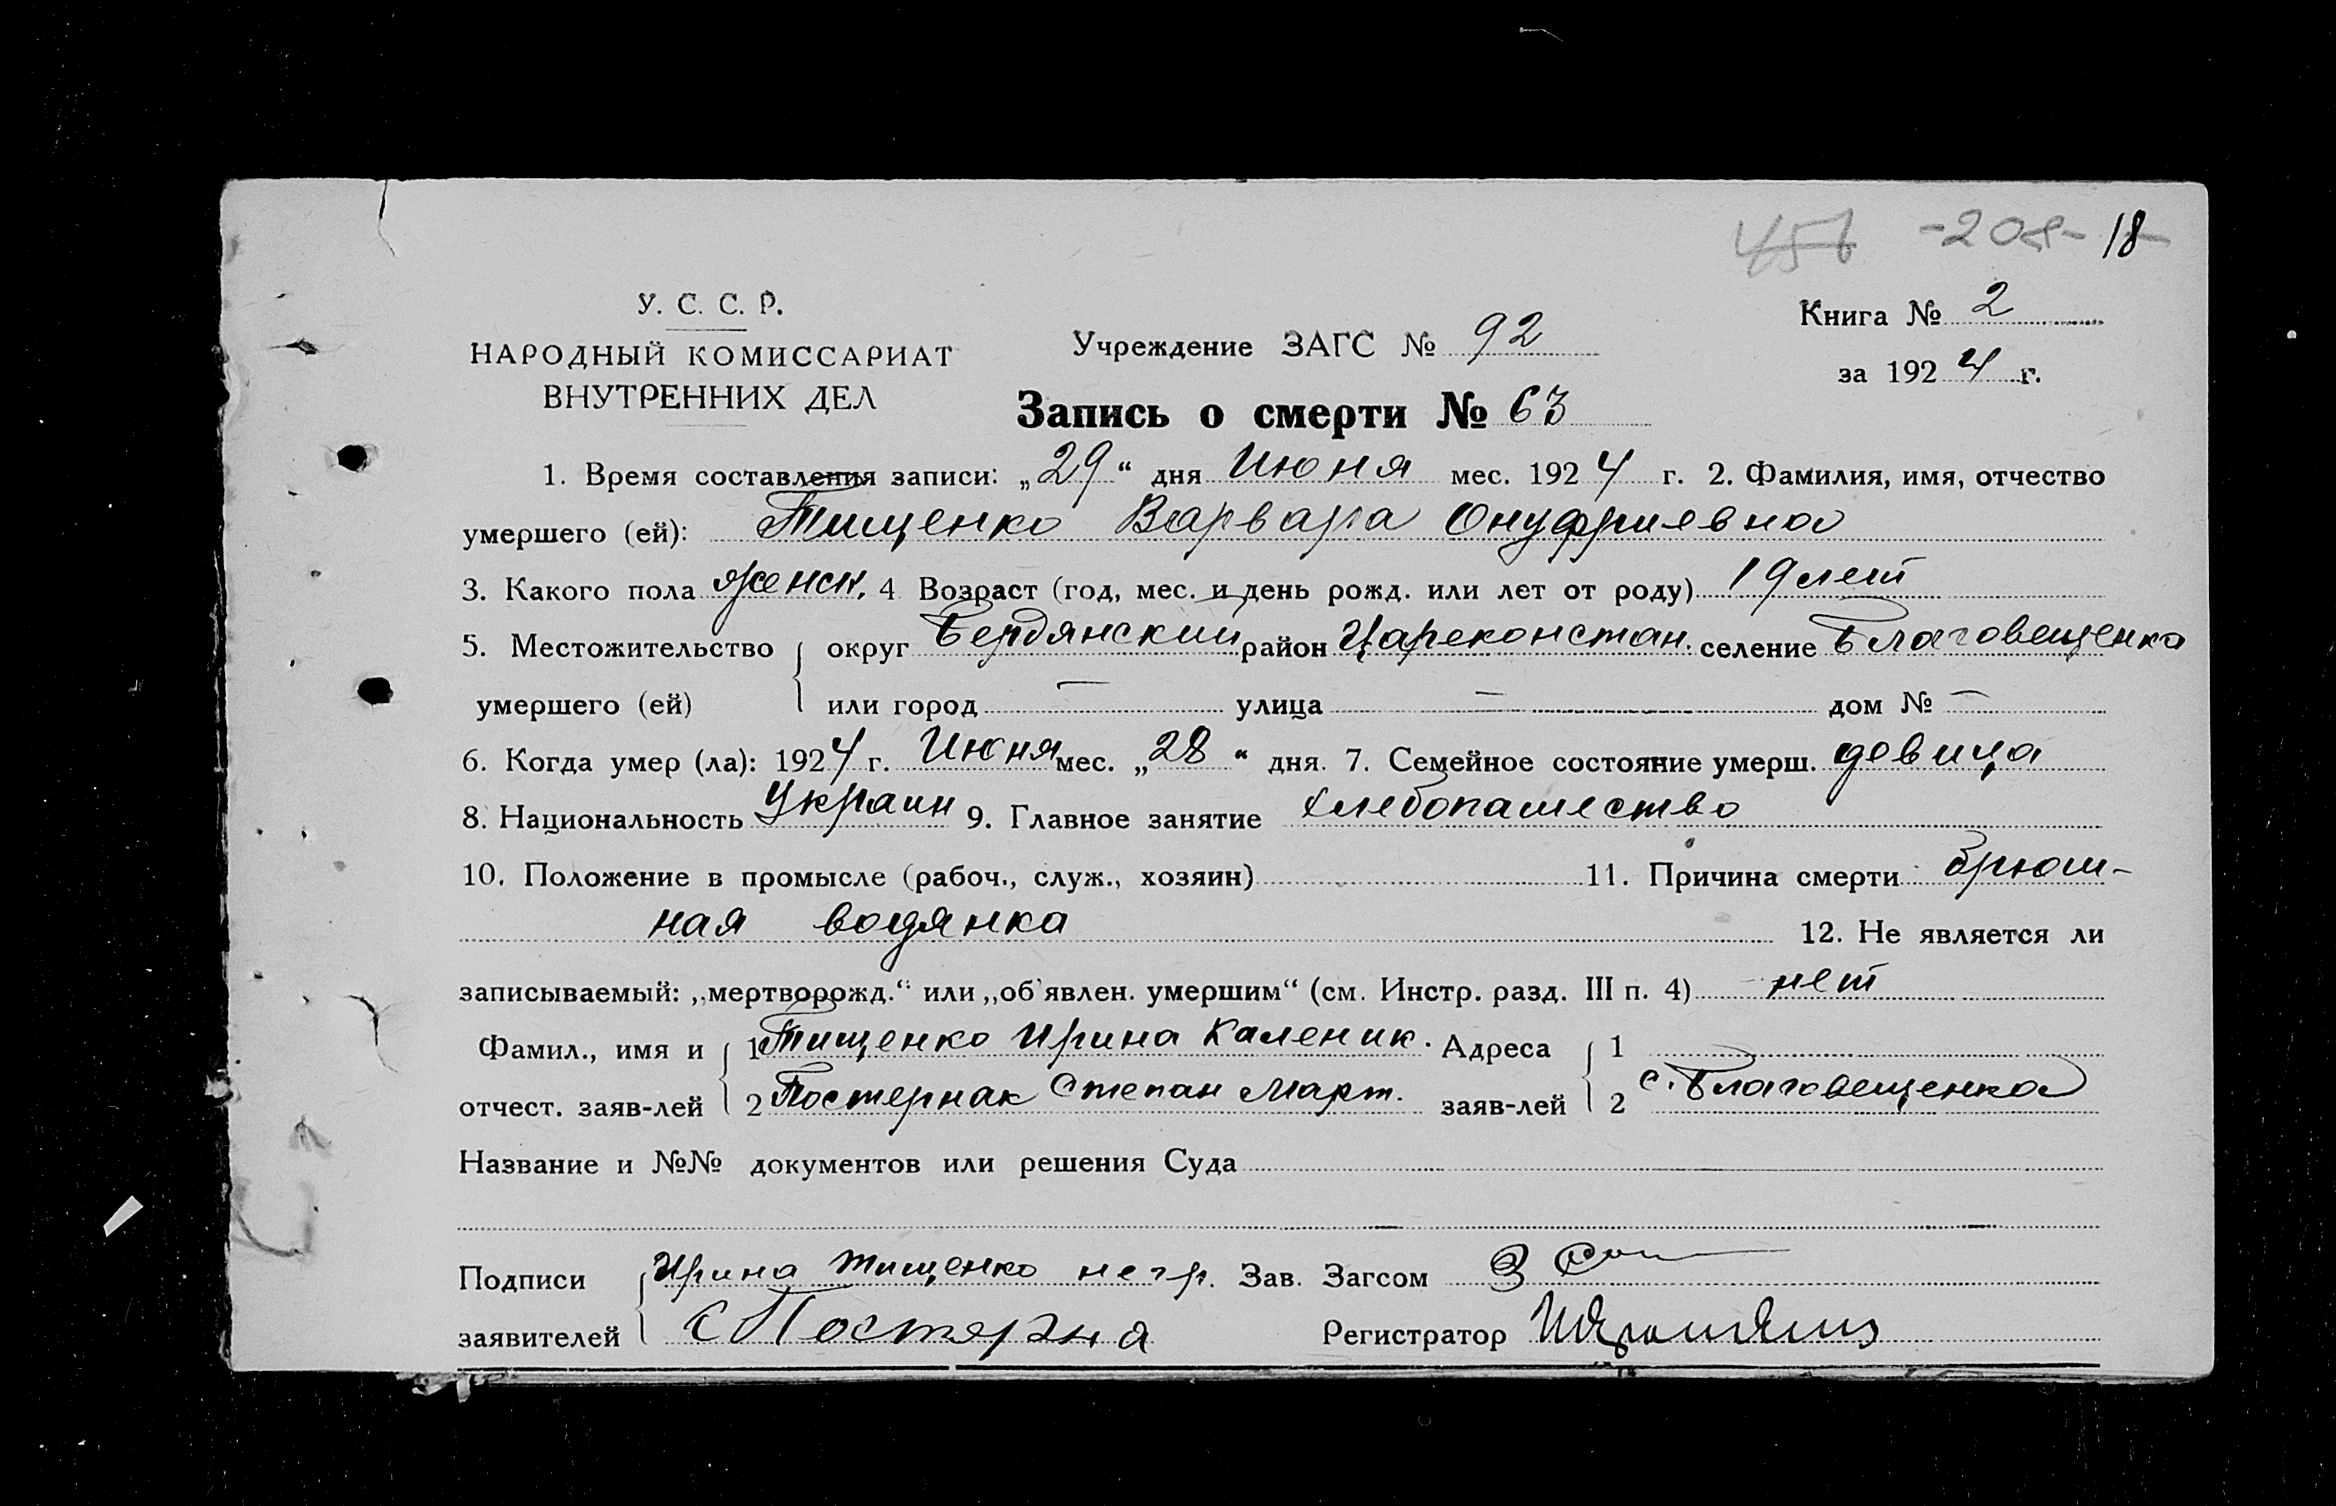 456 -208- 18
У. С. С. Р.
НАРОДНЫЙ КОМИССАРИАТ
ВНУТРЕННИХ ДЕЛ
Учреждение ЗАГС № 92
Книга № 2
за 1924 г.
Запись о смерти № 63
1. Время составления записи: „29“ дня Июня мес. 1924 г. 2. Фамилия, имя, отчество
умершего (ей): Тищенко Варвара Онуфриевна
3. Какого пола женск. 4 Возраст (год, мес. и день рожд. или лет от роду) 19 лет
5. Местожительство округ Бердянский район Цареконстан. селение Благовещенка
умершего (ей) или город — улица — дом № —
6. Когда умер (ла): 1924 г. Июня мес. „28“ дня. 7. Семейное состояние умерш. девица
8. Национальность Украин 9. Главное занятие хлебопашество
10. Положение в промысле (рабоч., служ., хозяин) 11. Причина смерти брюш-
ная водянка 12. Не является ли
записываемый: „мертворожд.“ или „об'явлен. умершим“ (см. Инстр. разд. III п. 4) нет
Фамил., имя и 1 Тищенко Ирина Каленик. Адреса 1
отчест. заяв-лей 2 Постернак Степан Март. заяв-лей 2 с. Благовещенка
Название и №№ документов или решения Суда
Подписи Ирина Тищенко негр. Зав. Загсом
заявителей С Постерна Регистратор